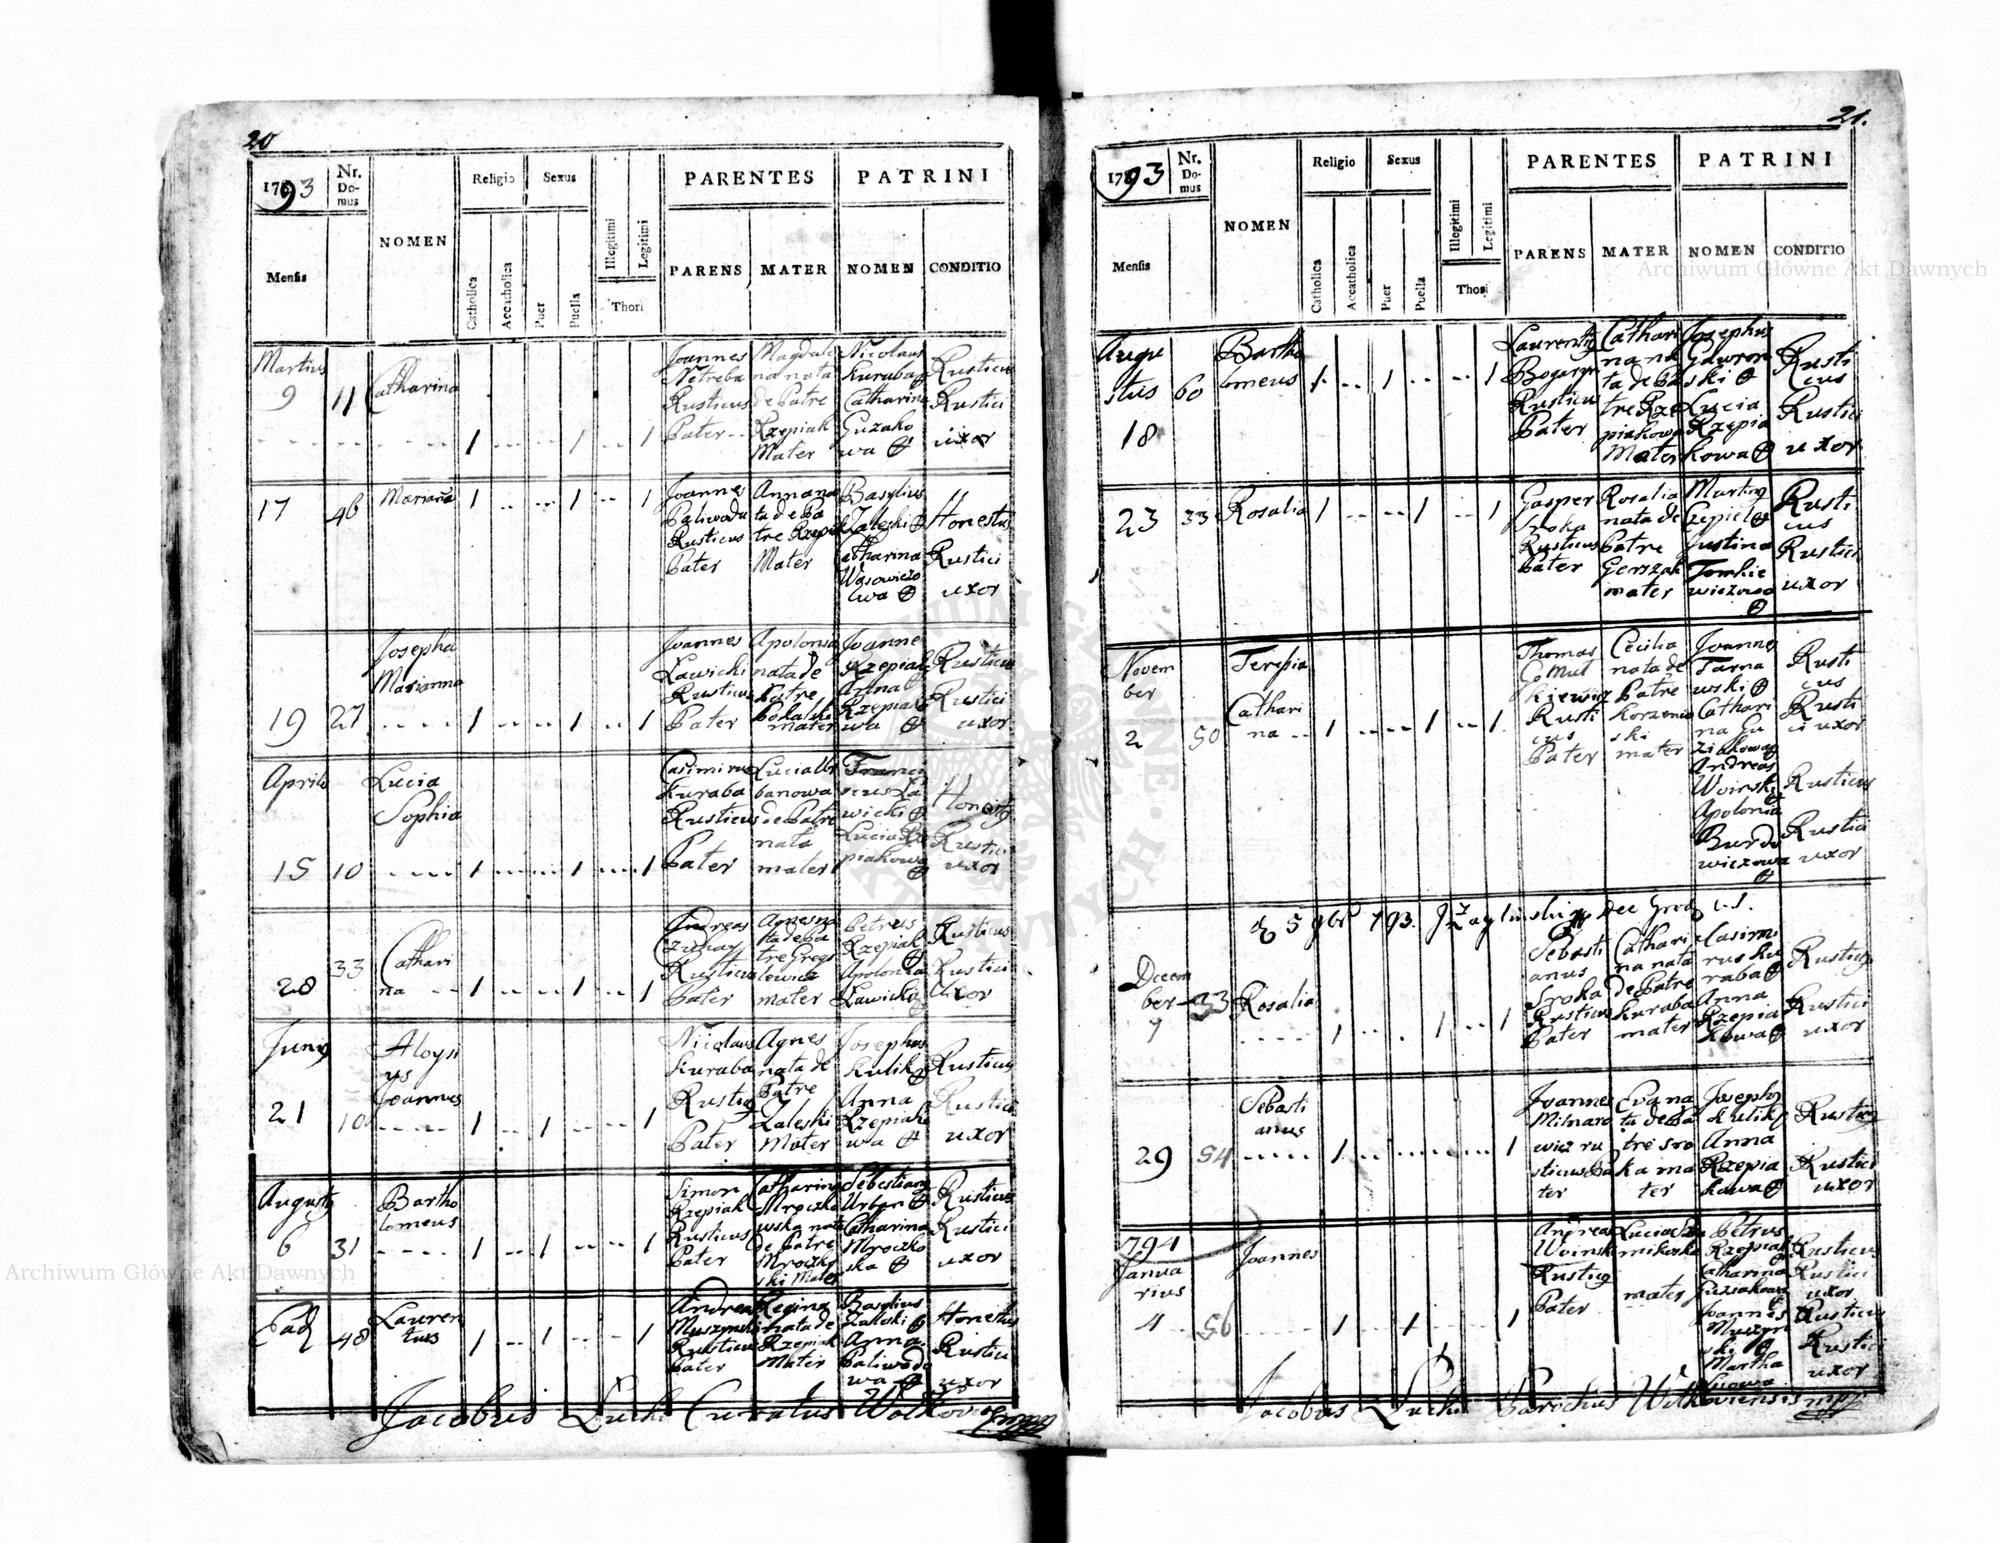 20
1793
Nr. Domus
NOMEN
Religio
Sexus
PARENTES
PATRINI
Mensis
Catholica
Accatholica
Puer
Puella
Illegitimi
Legitimi
Thori
PARENS
MATER
NOMEN
CONDITIO
Martius
9
11
Catharina
1
1
1
Joannes
Netreba
Rusticus
Pater
Magdale
na nata
de Patre
Rzepiak
Mater
Nicolaus
Kuraba
Catharina
Guzako
wa
Rusticus
Rustici
uxor
17
46
Marianna
1
1
1
Joannes
Paliwoda
Rusticus
Pater
Anna na
ta de Pa
tre Rzepiak
Mater
Basylius
Zaleski
Catharina
Honestus
Rustici
uxor
19
27
Josepha
Marianna
1
1
1
Joannes
Lawicki
Rusticus
Pater
Apolonia
nata de
Patre
mater
Joanne
Rzepiak
Anna
Rzepiako
wa
Rusticus
Rustici
uxor
Aprilis
15
10
Lucia
Sophia
1
1
1
Casimirus
Kuraba
Rusticus
Pater
Lucia Ur
banowa
de Patre
nata
mater
Franci
scus La
wicki
Lucia Rze
piakowa
Honestus
Rustici
uxor
28
33
Cathari
na
1
1
1
Andreas
Rusticus
Pater
Agnes na
ta de Pa
tre Grego
lewicz
mater
Petrus
Rzepiak
Apolonia
Lawicka
Rusticus
Rustici
Uxor
Juny
21
10
Aloysi
us
Joannes
1
1
1
Nicolaus
Kuraba
Rusticus
Pater
Agnes
nata de
Patre
Zaleski
Mater
Josephus
Kulik
Anna
Rzepiako
wa
Rusticus
Rustici
uxor
Augusty
6
31
Bartho
lomeus
1
1
1
Simon
Rzepiak
Rusticus
Pater
Catharina
Mroczko
wska nata
de Patre
Mroczko
ski Mater
Sebestianus
Urban
Catharina
Mroczko
ska
Rusticus
Rustici
uxor
Ead
48
Lauren
tius
1
1
1
Andreas
Muszynski
Rusticus
Pater
Regina
nata de
Rzepiak
Mater
Basylius
Zaleski
Anna
Paliwodo
wa
Honestus
Rustici
uxor
Jacobus Curatus
21.
1793
Nr. Domus
NOMEN
Religio
Sexus
PARENTES
PATRINI
Mensis
Catholica
Accatholica
Puer
Puella
Illegitimi
Legitimi
Thori
PARENS
MATER
NOMEN
CONDITIO
Augu
stus
18
60
Bartho
lomeus
1
1
1
Laurenty
Rusticus
Pater
Cathari
na na
ta de Pa
tre Rze
piakowa
Mater
Josephus
Gawron
ski
Lucia
Rzepia
kowa
Rusti
cus
Rustici
uxor
23
33
Rosalia
1
1
1
Gasper
Sroka
Rusticus
Pater
Rosalia
nata de
Patre
Gerszak
mater
Martinus
Justina
Tomkie
wiczowa
Rusti
cus
Rustici
uxor
Novem
ber
2
50
Teresia
Cathari
na
1
1
1
Thomas
Rusti
cus
Pater
Cecilia
nata de
Patre
Korzenio
ski
mater
Joannes
Tarna
wski
Cathari
na Gu
ziakowa
Andreas
Woinski
Apolonia
Burdo
wiczowa
Rusti
cus
Rusti
ci uxor
Rusticus
Rustici
uxor
Decem
ber
7
33
Rosalia
1
1
1
Sebasti
anus
Sroka
Rusticus
Pater
Cathari
na nata
de Patre
Kuraba
mater
Casimi
rus Ku
raba
Anna
Rzepia
kowa
Rusticus
Rustici
uxor
29
54
Sebasti
anus
1
1
Joannes
Milnaro
wicz ru
sticus Pa
ter
Eva na
ta de Pa
tre Sro
ka ma
ter
Josephus
Kulik
Anna
Rzepia
kowa
Rusticus
Rustici
uxor
794
Janua
rius
4
56
Joannes
1
1
1
Andreas
Woinski
Rusticus
Pater
Lucia
mater
Petrus
Rzepiak
Catharina
Guziakowa
Joannes
Muszyn
ski
Martha
Rusticus
Rustici
uxor
Rusticus
Rustici
uxor
Jacobus Parochus
Archiwum Główne Akt Dawnych
Archiwum Główne Akt Dawnych